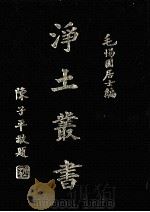 毛惕園居士編
淨土叢書
陳子平敬題